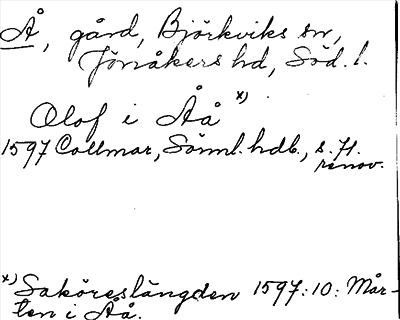 Å, gård, Björkviks sn,
Jönåkers hd, Söd. l.
Olof i Åå x)
1597 Collmar, Sörml. hdl., s. 71.
renov.
x) Saköreslängden 1597:10: Mår-
ten i Åå.